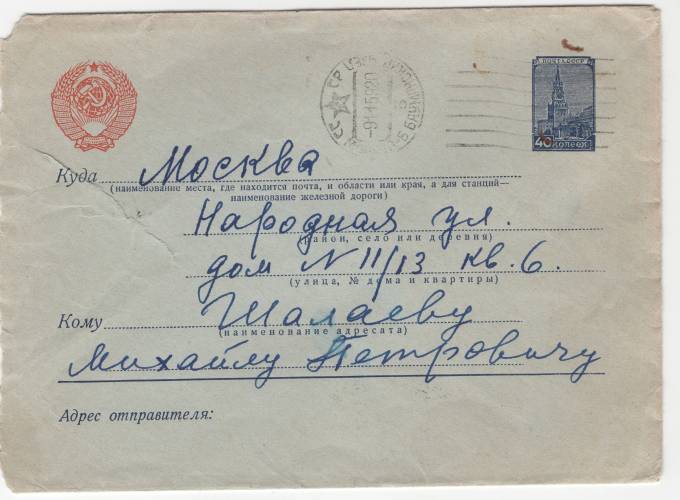 ПОЧТА СССР
40 копеек
Куда Москва
(наименование места, где находится почта, и области или края, а для станций—
наименование железной дороги)
Народная ул.
(район, село или деревня)
дом N 11/13 кв. 6.
(улица, № дома и квартиры)
Кому Шалаеву
(наименование адресата)
Михайлу Петровичу
Адрес отправителя: